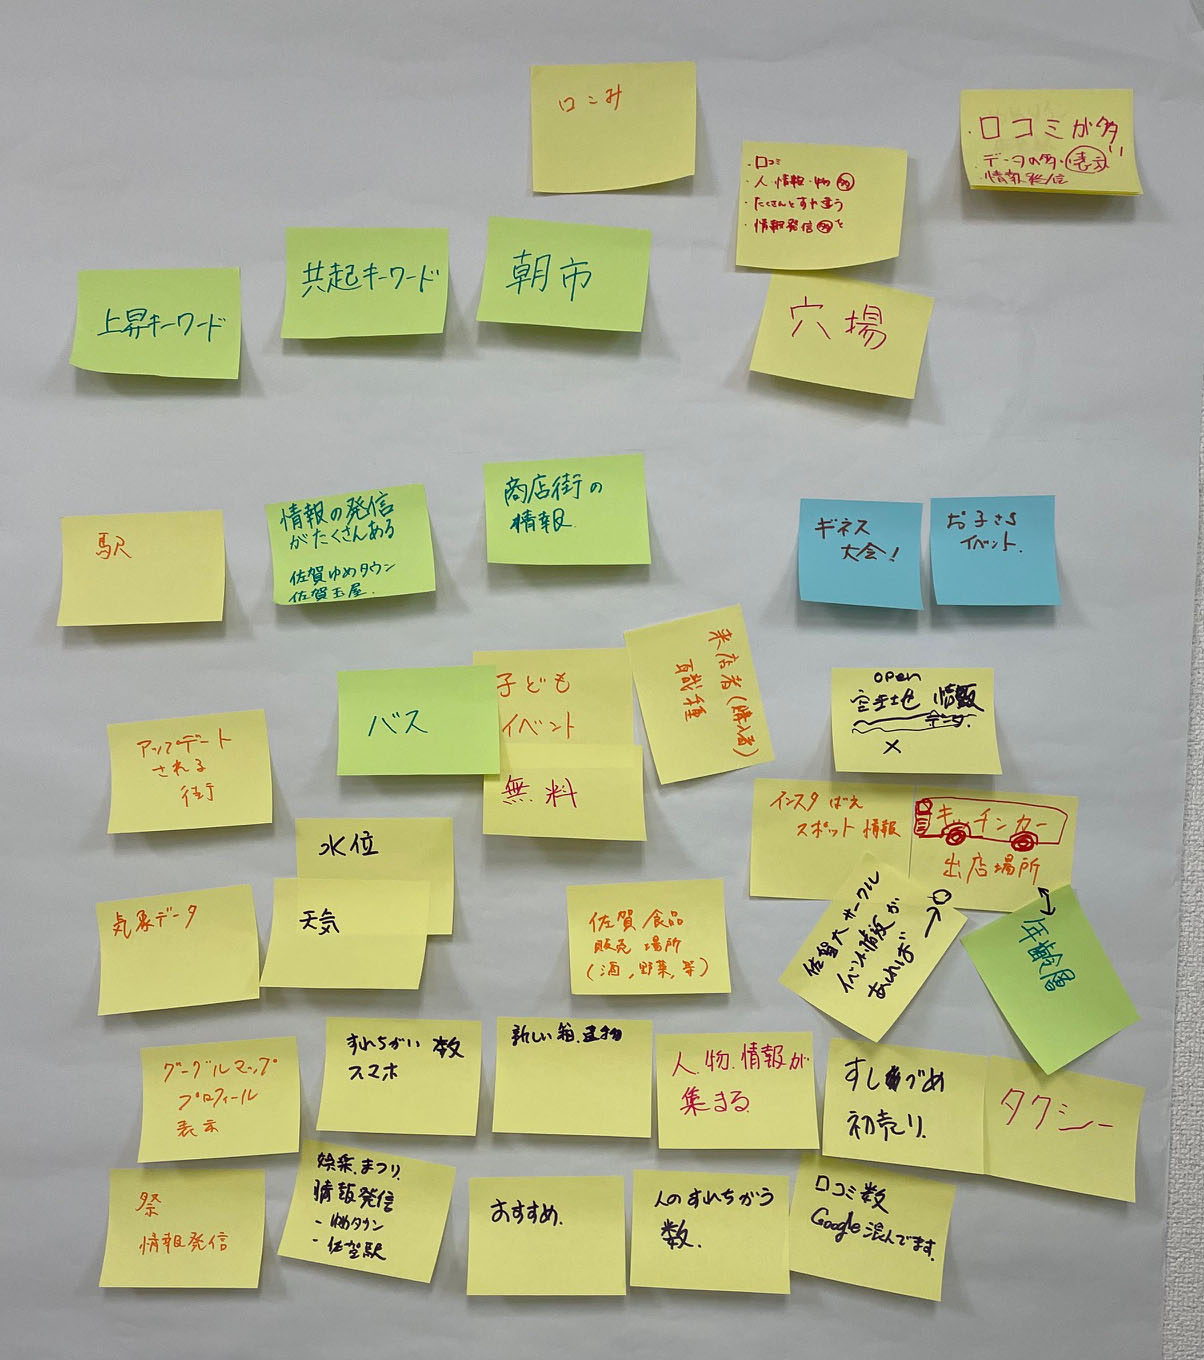 ロコミ
・口コミ
・人・情報・物 多
・たくさんとすれ違う
・情報発信 多
・口コミが多い
・データの多
・情報発信
上昇キーワード
共起キーワード
朝市
穴場
駅
情報の発信
がたくさんある
佐賀ゆめタウン
佐賀玉屋.
商店街の
情報.
ギネス
大会!
お子さま
イベント.
アップデート
される
街
バス
子ども
イベント
無料
来店者(購入者)
職種
open
空き地 情報
データ.
×
インスタばえ
スポット情報
キッチンカー
出店場所
水位
気象データ
天気
佐賀食品
販売場所
(酒,野菜,等)
佐賀大サークル
イベント情報が
あれば
年齢層
グーグルマップ
プロフィール
表示
すれちがい 数
スマホ
新しい箱.建物
人.物.情報が
集まる
すしづめ
初売り.
タクシー
祭
情報発信
娯楽.まつり.
情報発信
- ゆめタウン
- 佐賀駅
おすすめ.
人のすれちがう
数.
口コミ数
Google 混んでます.